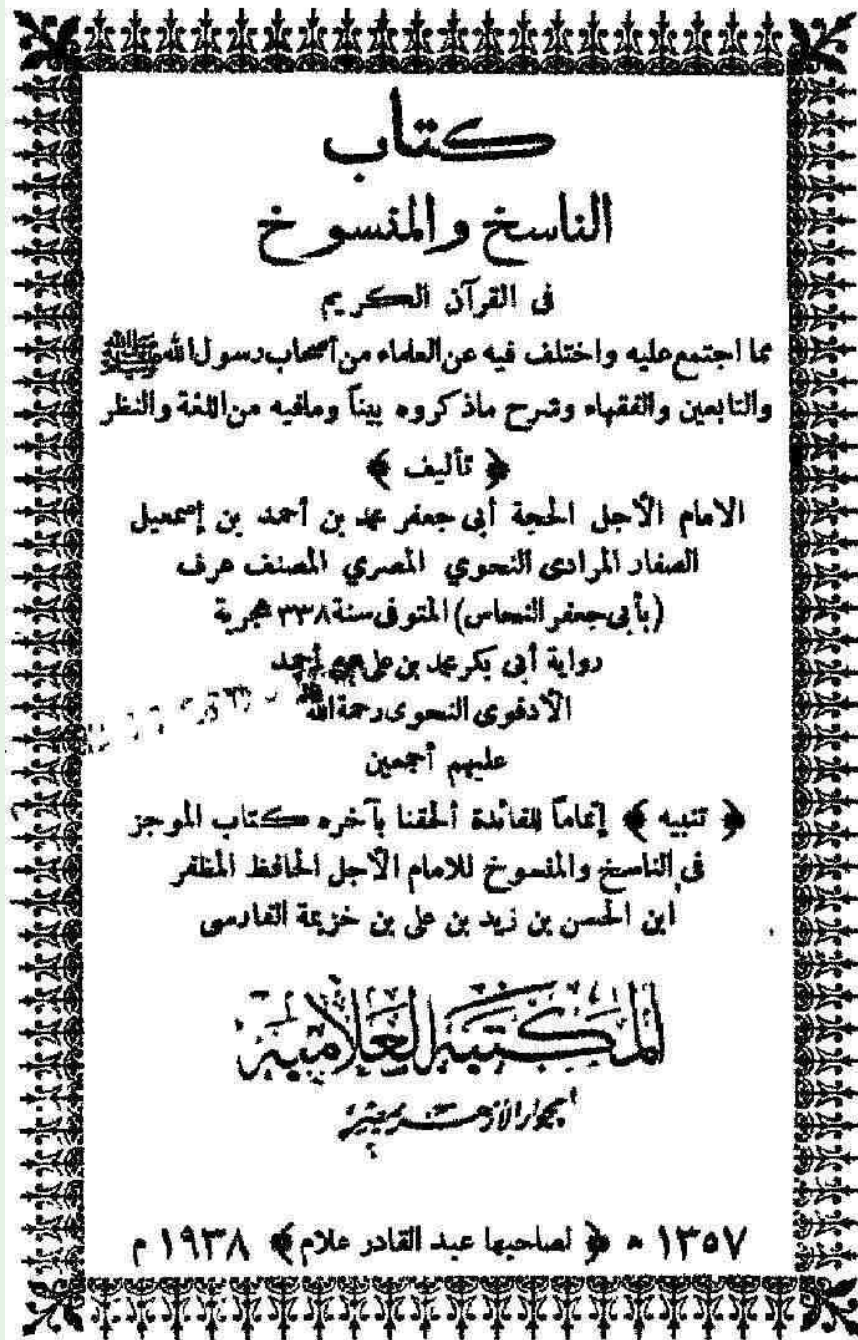 كتاب
الناسخ والمنسوخ
فى القرآن الكريم
مما اجتمع عليه واختلف فيه عن العلماء من أصحاب رسول الله ﷺ
والتابعين والفقهاء وشرح ماذكروه بيناً ومافيه من اللغة والنظر
﴿ تأليف ﴾
الامام الأجل الحجة أبى جعفر محمد بن أحمد بن إسمعيل
الصفار المرادى النحوي المصري المصنف عرف
(بأبى جعفر النحاس) المتوفى سنة ٣٣٨ هجرية
رواية أبى بكر محمد بن على أحمد
الأدفوى النحوى رحمة الله
عليهم أجمعين
﴿ تنبيه ﴾ إتماماً للفائدة ألحقنا بآخره كتاب الموجز
فى الناسخ والمنسوخ للامام الأجل الحافظ المظفر
ابن الحسن بن زيد بن على بن خزيمة الفارسى
المكتبة العلامية
بجوار الأزهر بمصر
١٣٥٧ ه ﴿ لصاحبها عبد القادر علام ﴾ ١٩٣٨ م